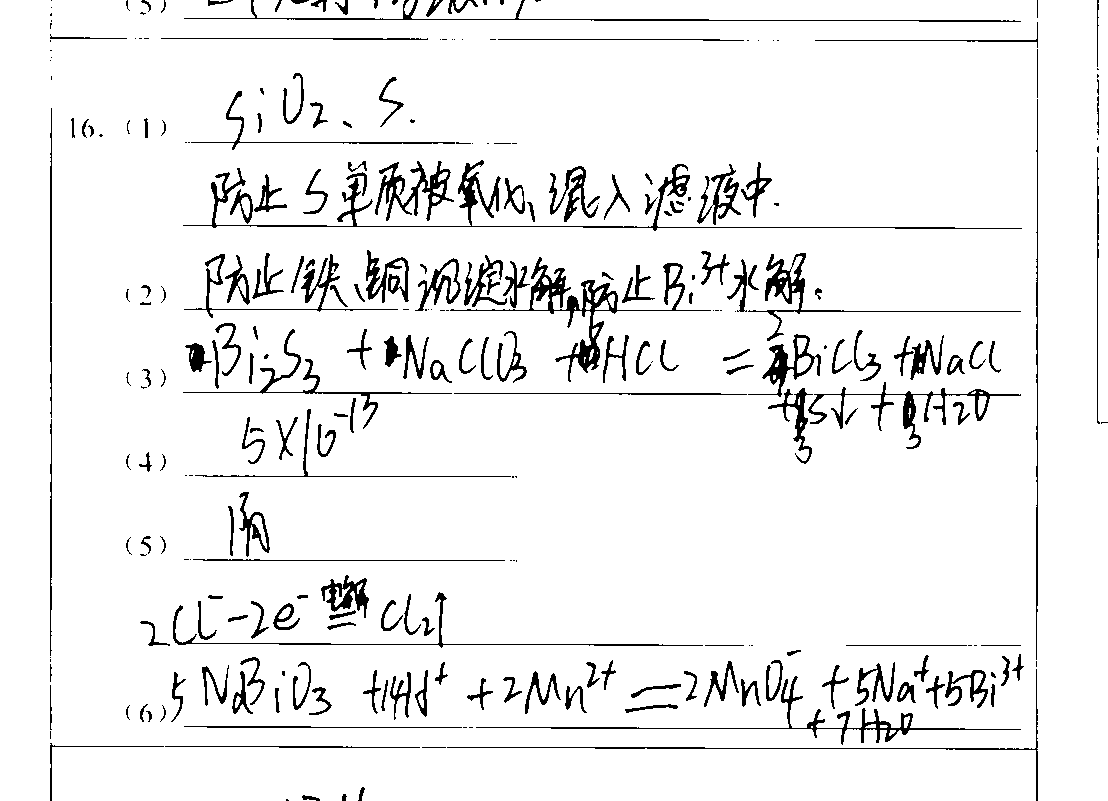 (5)
16. (1) SiO₂、S.
防止S单质被氧化,混入滤液中.
(2) 防止铁、铜沉淀水解,防止Bi³⁺水解.
(3) Bi₂S₃ + NaClO₃ + 6HCl = 2BiCl₃ + NaCl
+3S↓ + 3H₂O
(4) 5×10⁻¹³
(5) 阴
2Cl⁻-2e⁻ 电解== Cl₂↑
(6) 5NaBiO₃ +14H⁺ +2Mn²⁺ == 2MnO₄⁻ +5Na⁺+5Bi³⁺
+7H₂O